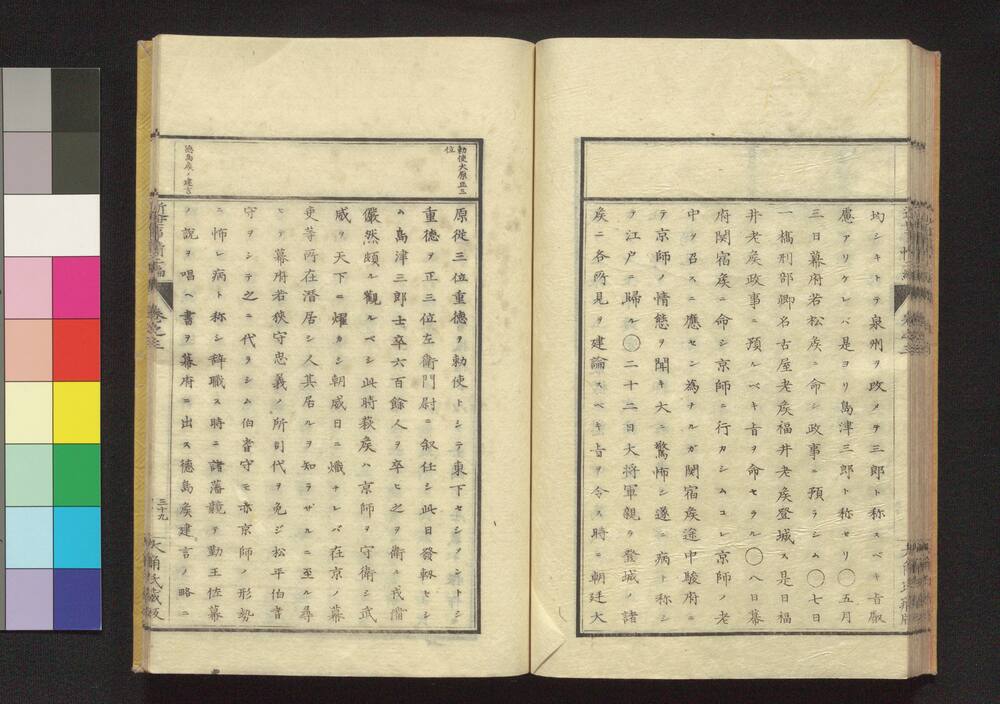 均シキトテ泉州ヲ改メテ三郎ト称スベキ旨叡
慮アリケレバ是ヨリ島津三郎ト称セリ〇五月
三日幕府若松矦ニ命シ政事ニ預ラシム〇七日
一橋刑部卿名古屋老矦福井老矦登城ス是日福
井老矦政事ニ預ルベキ旨ヲ命セラル〇八日幕
府関宿矦ニ命シ京師ニ行カシムコレ京師ノ老
中ヲ召スニ應セン為ナルガ関宿矦途中駿府ニ
テ京師ノ情態ヲ聞キ大ニ驚怖シ遂ニ病ト称シ
テ江戸ニ歸ル〇二十二日大将軍親ラ登城ノ諸
矦ニ各所見ヲ建論スベキ旨ヲ令ス時ニ朝廷大
勅使大原正三
位
原従三位重徳ヲ勅使トシテ東下セシメントシ
重徳ヲ正三位左衛門尉ニ叙任シ此日發軔セシ
ム島津三郎士卒六百餘人ヲ卒ヒ之ヲ衛ル我備
儼然頗ル觀ルベシ此時萩矦ハ京師ヲ守衛シ武
威ヲ天下ニ燿カシ朝威日ニ熾ナレバ在京ノ幕
吏等所在潜居シ人其居ルヲ知ラザルニ至ル尋
ヒテ幕府若狹守忠義ノ所司代ヲ免ジ松平伯耆
守ヲシテ之ニ代ラシム伯耆守モ亦京師ノ形勢
ニ怖レ病ト称シ辞職ス時ニ諸藩競テ勤王佐幕
ノ説ヲ唱ヘ書ヲ幕府ニ出ス徳島矦建言ノ略ニ
徳島矦ノ建言
卷之三
三十九